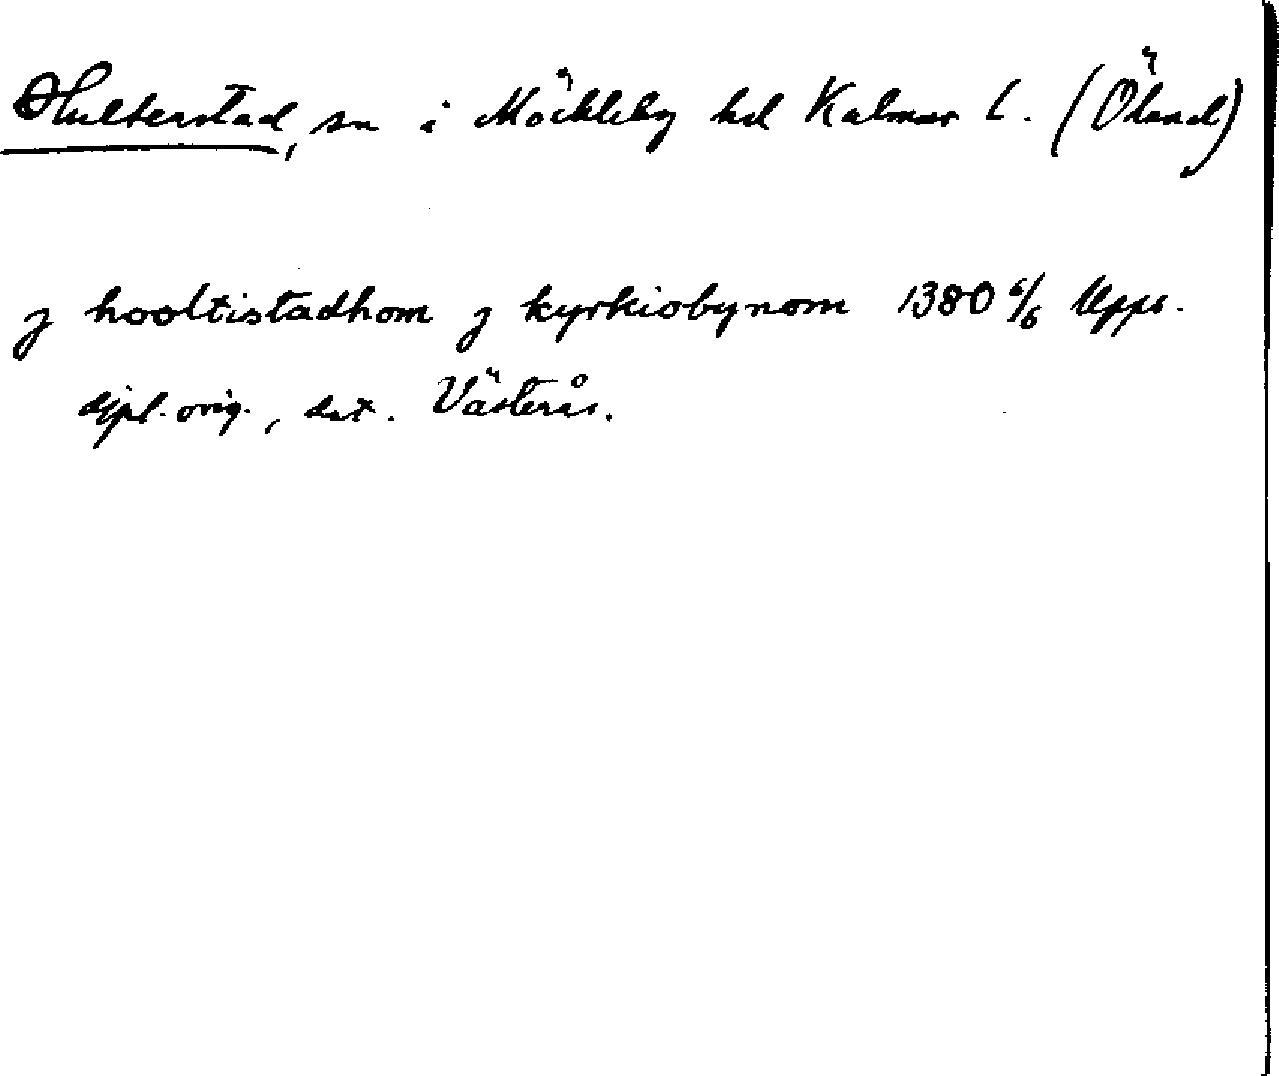 Hulterstad, sn i Möckleby hd Kalmar l. (Öland)
j hooltistadhom j kyrkiobynom 1380 6/6 Upps.
dipl. orig., dat. Västerås.